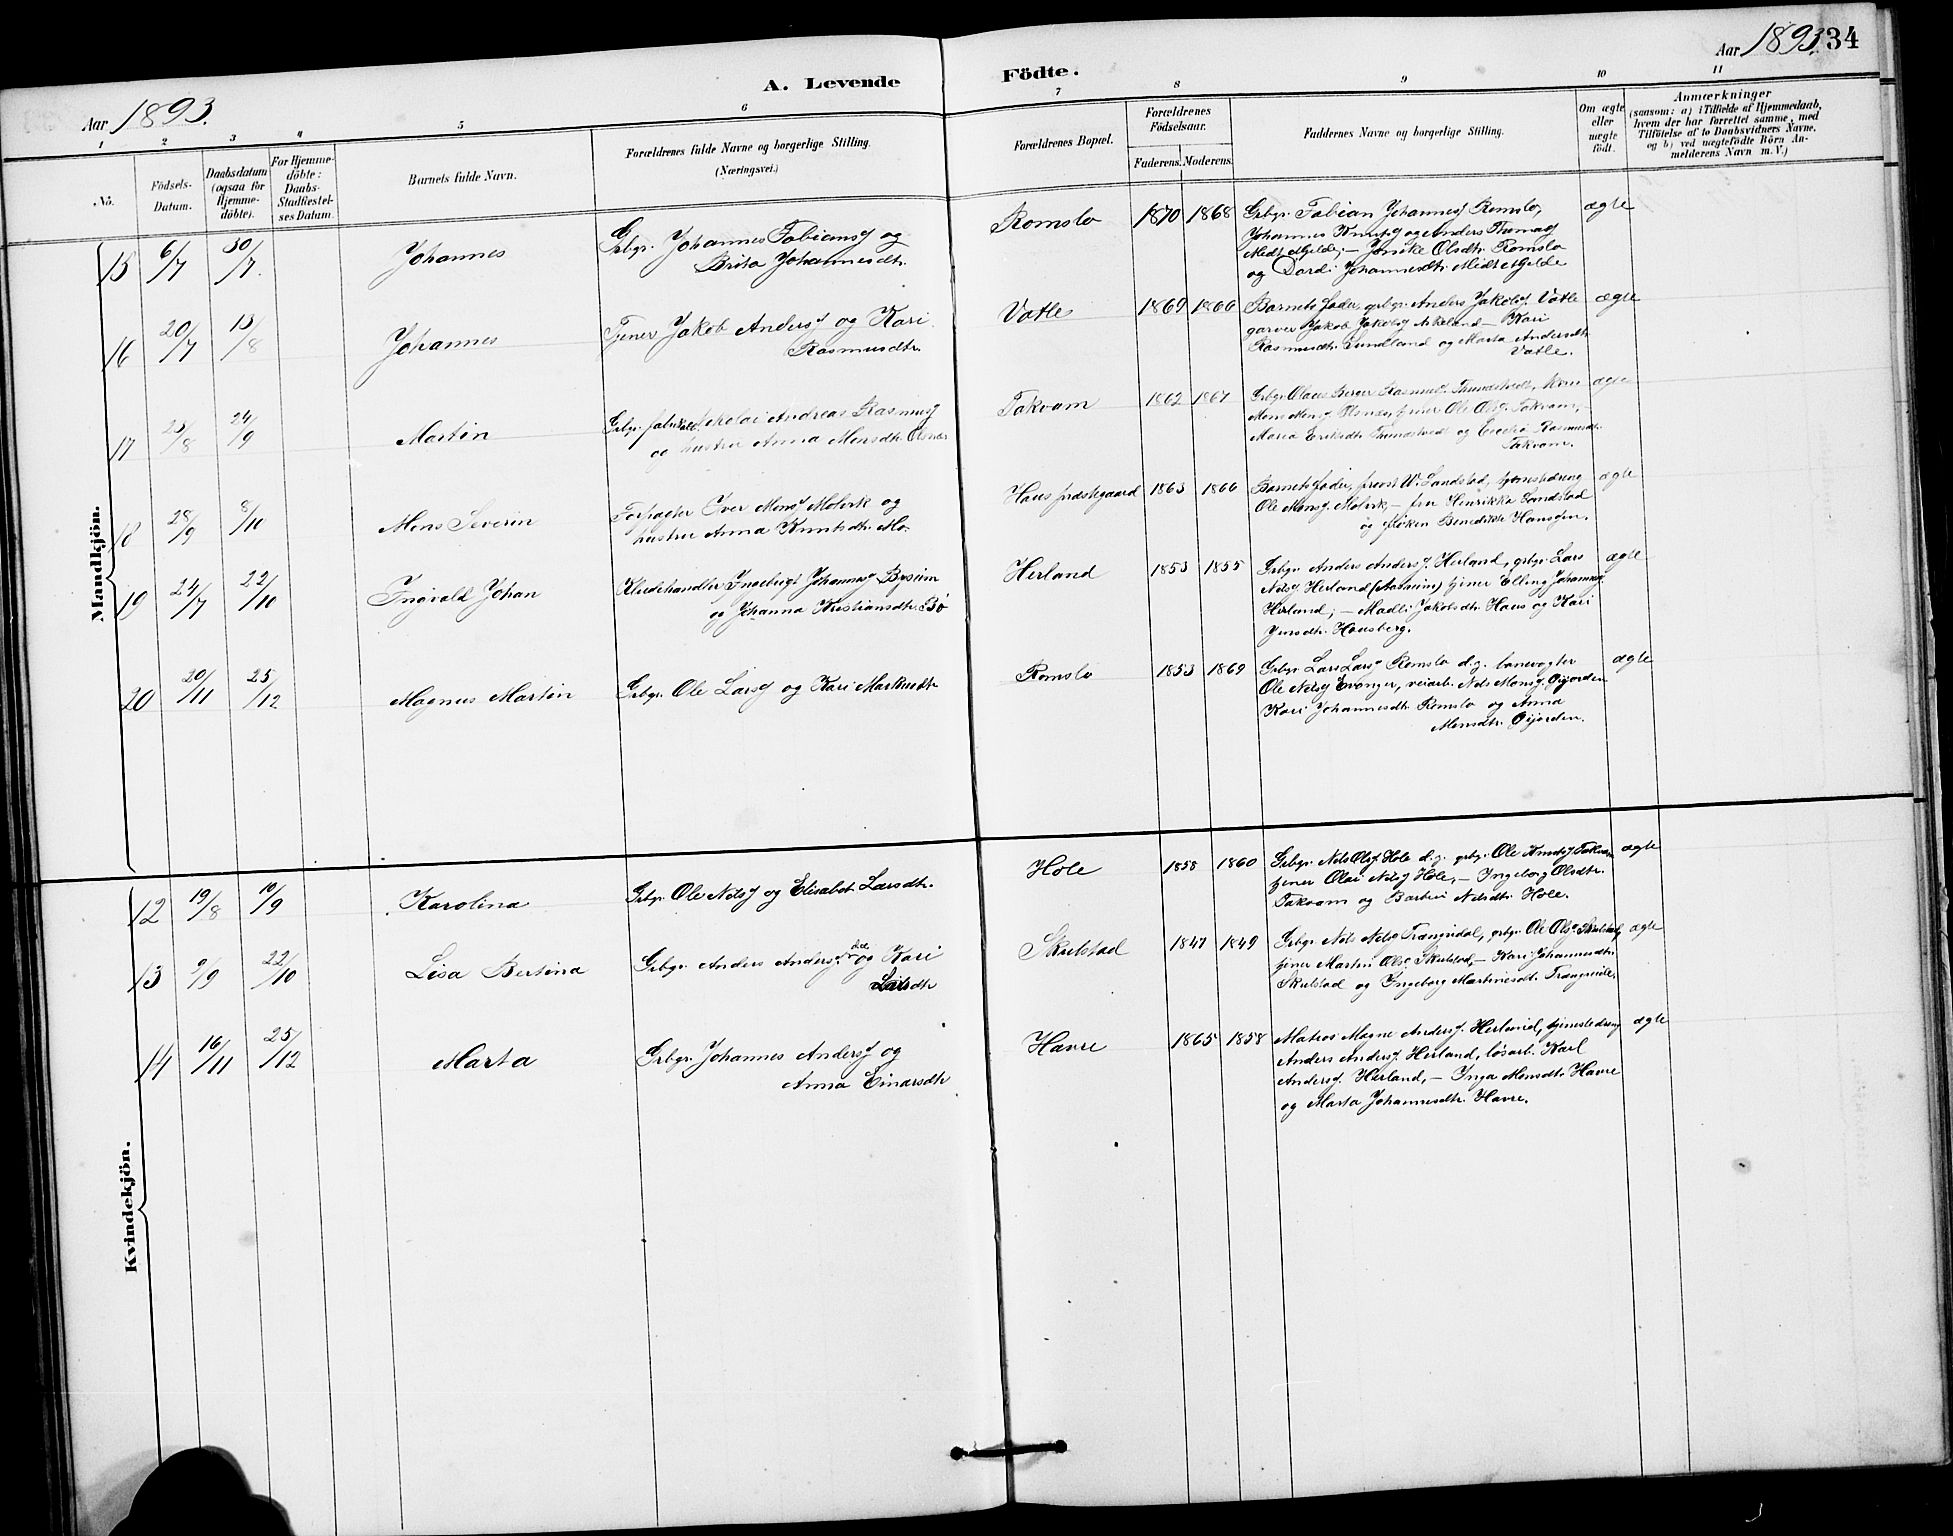 Aar 1893.
A. Levende
Födte.
Aar 1893. 34
1 2 3 4 5 6 7 8 9 10 11
No.
Födsels-
Datum.
Daabsdatum
(ogsaa for
Hjemme-
döbte).
For Hjemme-
döbte:
Daabs-
Stadfæstel-
ses Datum.
Barnets fulde Navn.
Forældrenes fulde Navne og borgerlige Stilling.
(Næringsvei.)
Forældrenes Bopæl.
Forældrenes
Födselsaar.
Faderens. Moderens.
Faddernes Navne og borgerlige Stilling.
Om ægte
eller
uægte
født.
Anmærkninger
(saasom: a) i Tilfælde af Hjemmedaab,
hvem der har forrettet samme, med
Tilföielse af to Daabsvidners Navne,
og b) ved uægtefödte Börn An-
melderens Navn m. V.)
Mandkjön.
15 6/7 30/7. Johannes
Grbgr. Johannes Fabiansf og
Brita Johannesdtr.
Romslo 1870 1868
Grbgr. Fabian Johannesf Romslo,
Johannes Knutsf og Anders Thomasf
Medt Mjelde, – Jonske Olsdtr. Romslo
og Dordi Johannesdtr. Midtmjelde
ægte
16 20/7 13/8 Johannes
Tjener Jakob Andersf og Kari
Rasmusdtr.
Vatle 1869 1866
Barnets fader, grbgr. Anders Jakobsf Vatle
garver Jakob Jakobsf Askeland – Kari
Rasmusdtr. Sundland og Marta Andersdtr.
Vatle.
ægte
17 23/8 24/9 Martin
Andreas Rasmusf
og hustru Anna Monsdtr.
Takvam 1862 1867
Grbgr Olaus Berner Rasmusf. Tunestvedt,
tjener Ole Olsf. Takvam, –
Maria Eriksdtr. Tunestvedt og Rasmusdtr.
Takvam.
ægte
18 28/9 8/10 Mons Severin
Forpagter Iver Monsf Molvik og
hustru Anna Knutsdtr. Mo.
Haus præstegaard 1863 1866
Barnets fader, provst W. Landstad, tjenestedreng
Ole Monsf. Molvik, – fru Henrikka Landstad
og frøken Benedikte Hansen.
ægte
19 24/7 22/10 Ingvald Johan
Klædehandler Ingebrigt Johannesf Bysheim
og Johanna Kristiansdtr. Bö
Herland 1853 1855
Grbgr. Anders Andersf. Herland, grbgr. Lars
Nelsf Herland (Aasheim) tjener Elling Johannesf
Herland, – Madli Jakobsdtr. Haus og Kari
Jensdtr. Hausberg.
ægte
20 20/11 25/12 Magnus Martin
Grbgr. Ole Larsf og Kari Markusdtr.
Romslo 1853 1869
Grbgr. Lars Larsf Romslo d.y. banevogter
Ole Nelsf Evanger, veiarb. Nels Monsf. Øijorden
Kari Johannesdtr. Romslo og Anna
Monsdtr. Øijorden.
ægte
Kvindekjön.
12 19/8 10/9 Karolina
Grbgr. Ole Nelsf og Elisabet Larsdtr.
Hole 1858 1860
Grbgr. Nels Olsf Hole d.y. grbgr. Ole Knutsf Takvam
tjener Olai Nelsf Hole, – Ingeborg Olsdtr.
Takvam og Bartini Nelsdtr. Hole.
ægte
13 9/9 22/10 Lisa Bertina
Grbgr. Anders Andersf og Kari
Larsdtr
Skulstad 1847 1849
Grbgr. Nels Nelsf Trængeridal, grbgr. Ole Olsf Skulstad,
tjener Martin Olsf. Skulstad, – Kari Johannesdtr.
Skulstad og Ingeborg Martinesdtr. Trængreide.
ægte
14 16/11 25/12 Marta
Grbgr. Johannes Andersf og
Anna Einarsdtr
Havre 1865 1858
Matros Magne Andersf. Herland, tjenestedreng
Anders Andersf. Herland, løsarb. Karl
Andersf. Herland, – Inga Monsdtr. Havre
og Marta Johannesdtr. Havre.
ægte